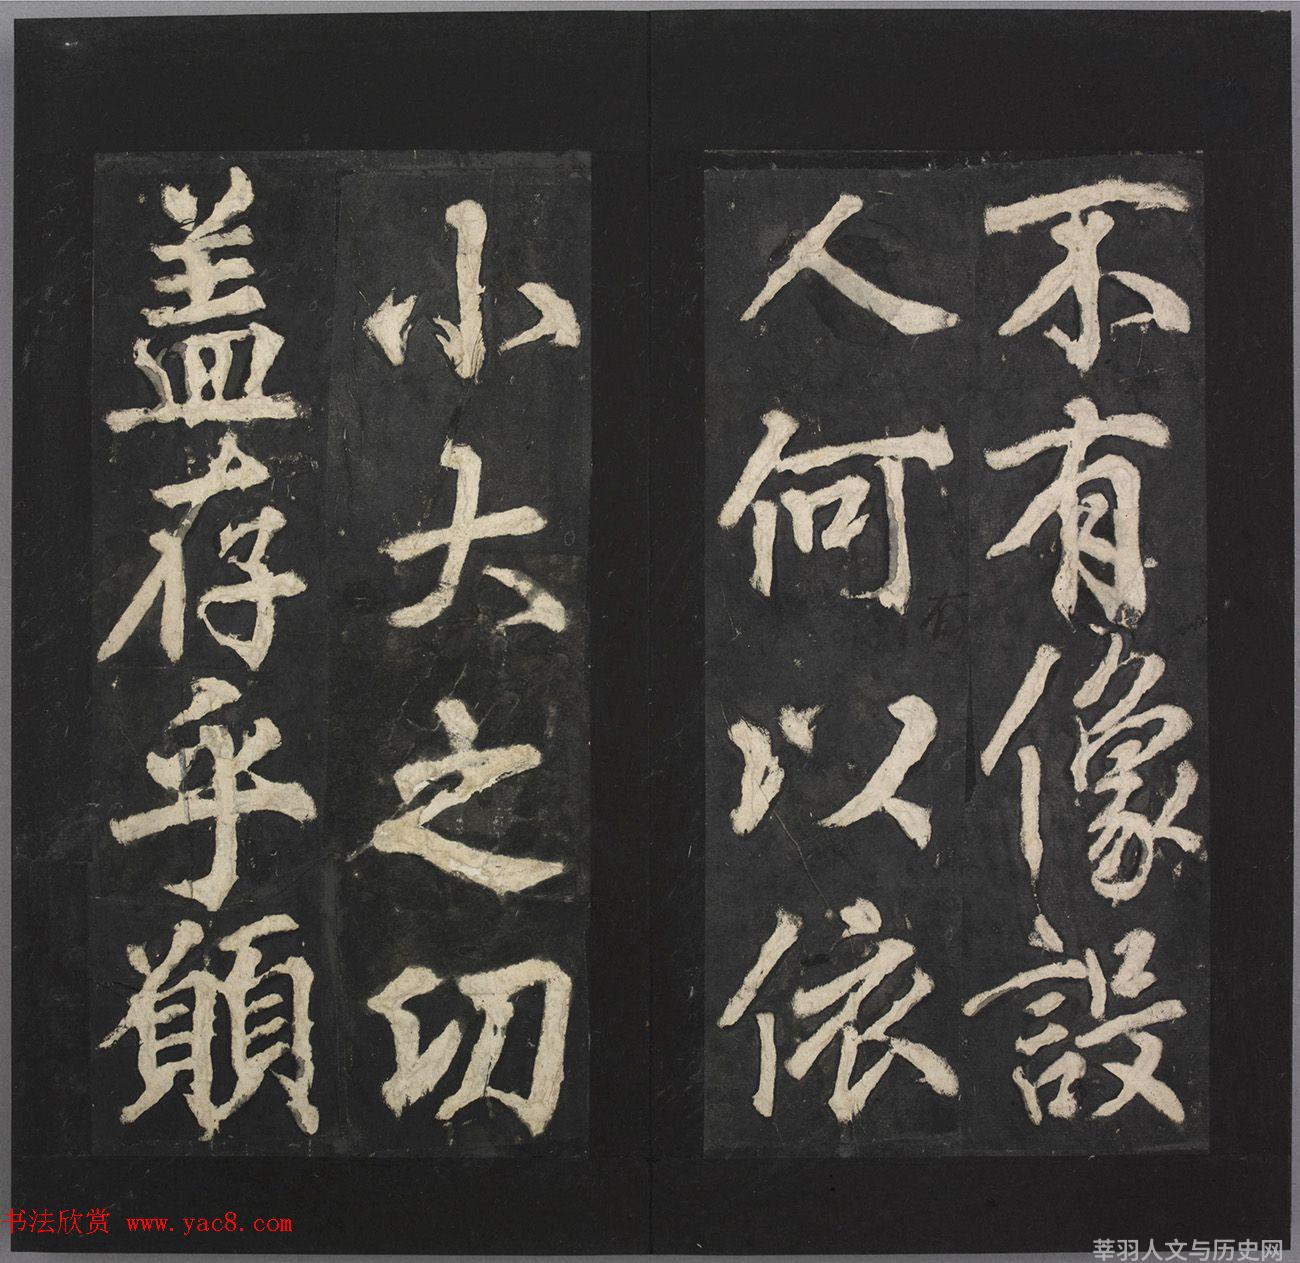 不有像設
人何以依
小大之切
盖存乎願
书法欣赏 www.yac8.com
莘羽人文与历史网